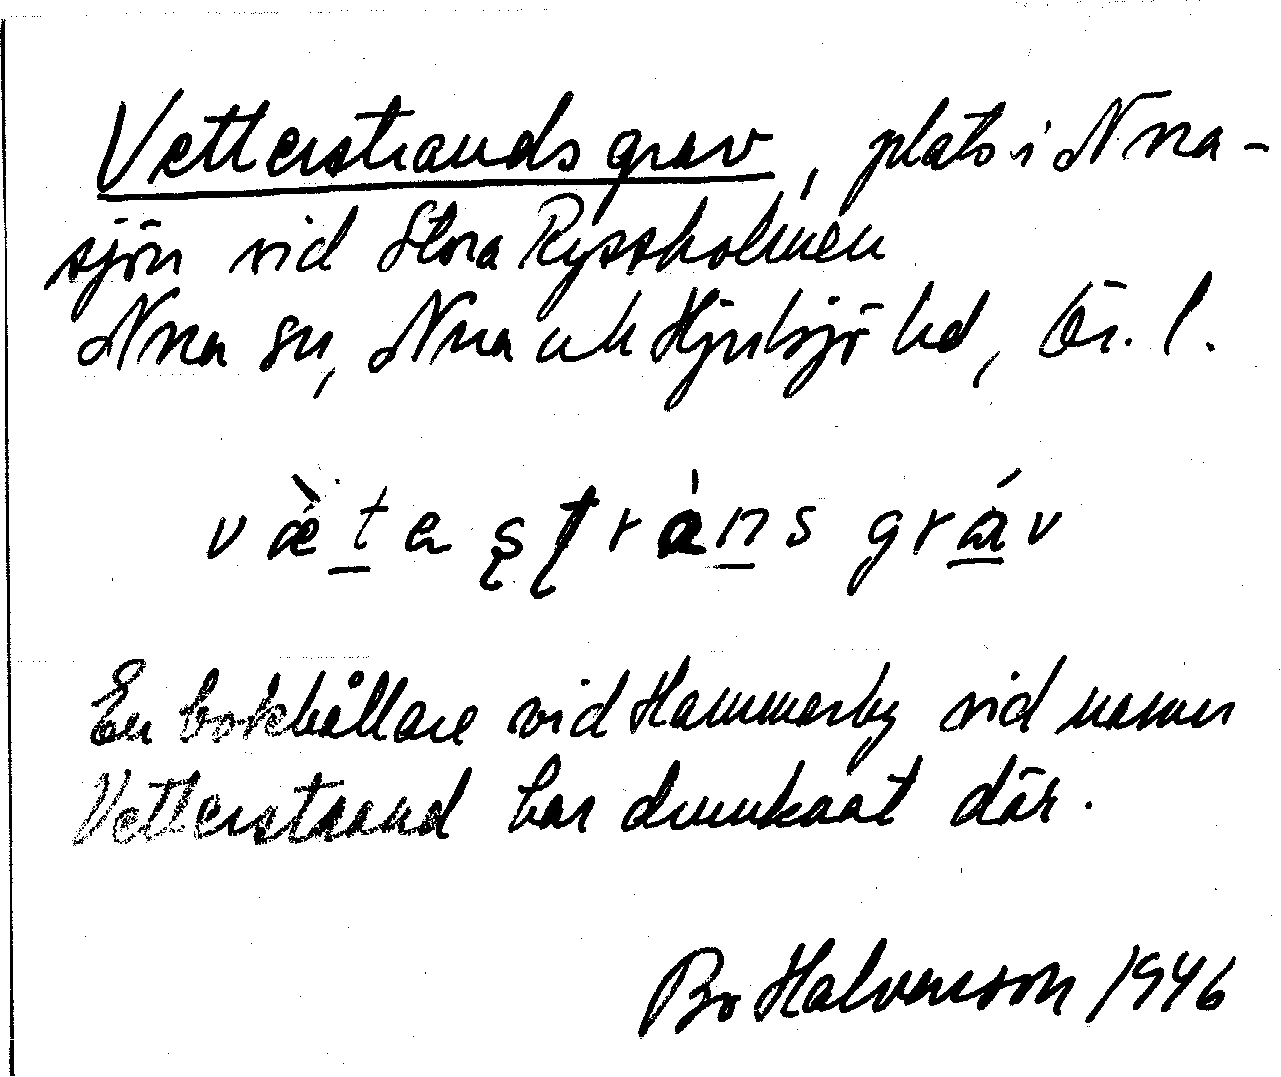 Vetterstrands grav, plats i Nora-
sjön vid Stora Ryssholmen
Nora sn, Nora och Hjulsjö hd, Ör. l.
væ̀ta ştràns gráv
En bokhållare vid Hammarby vid namn
Vetterstrand har drunknat där.
Bo Halvarsson 1946